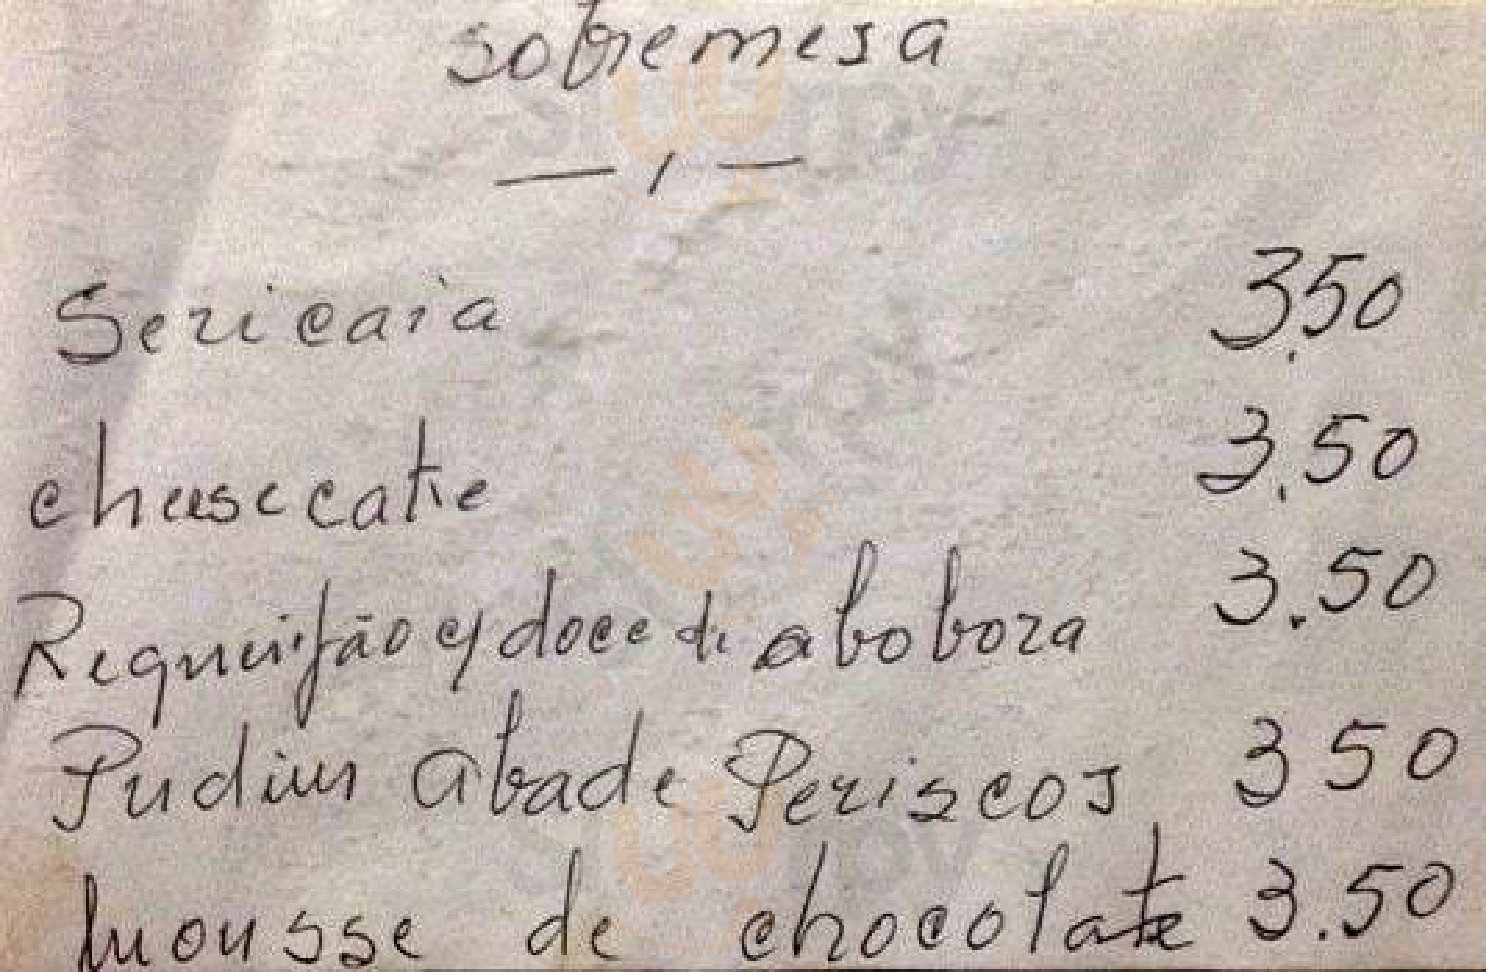 sobremesa
Sericaia 3.50
cheesecake 3.50
Requeijão c/ doce de abobora 3.50
Pudim abade Periscos 350
Mousse de chocolate 3.50